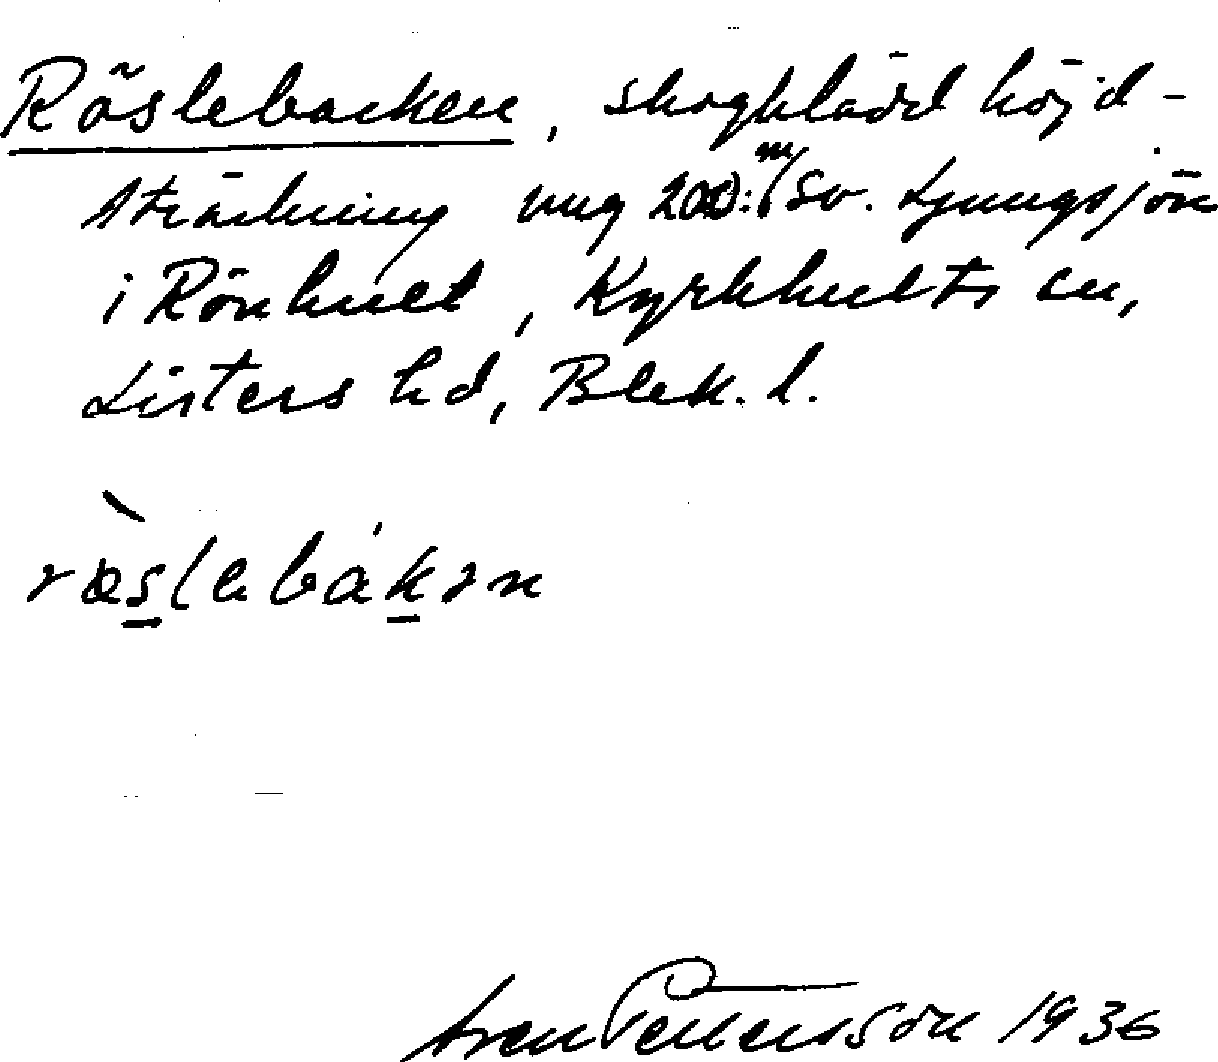 Röslebacken, skogklädd höjd-
sträckning ung 200 m SV. Ljungsjön
i Rönhult, Kyrkhults sn,
Listers hd, Blek. l.
ræslebákən
Sven Pettersson 1936